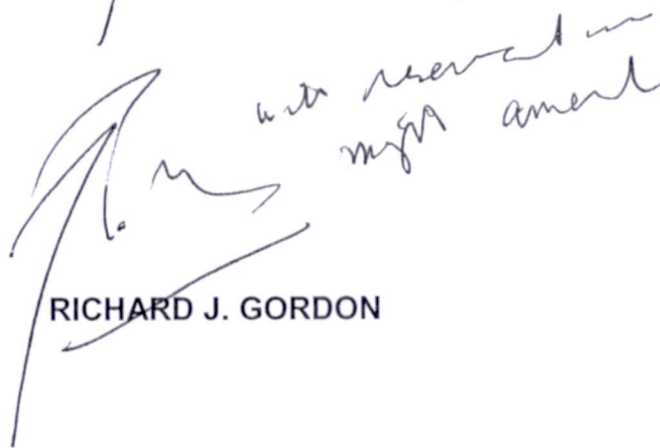 with reservation
might amend
RICHARD J. GORDON